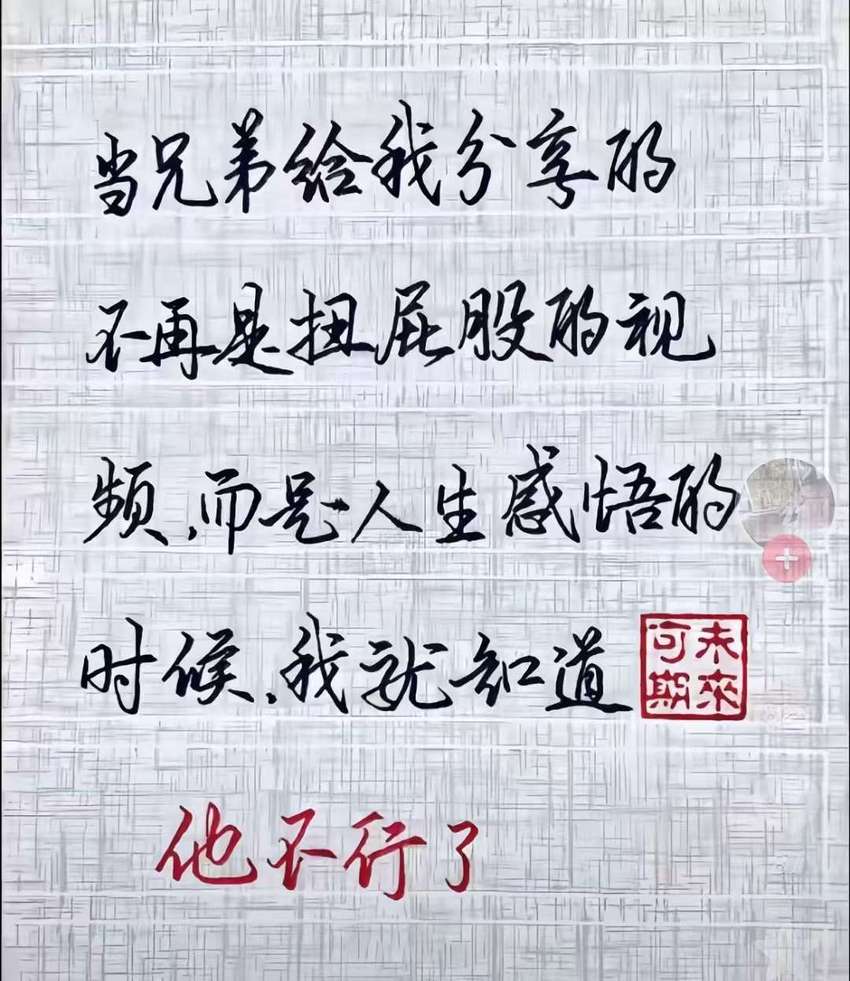 当兄弟给我分享的
不再是扭屁股的视
频,而是人生感悟的
时候,我就知道
未來可期
他不行了